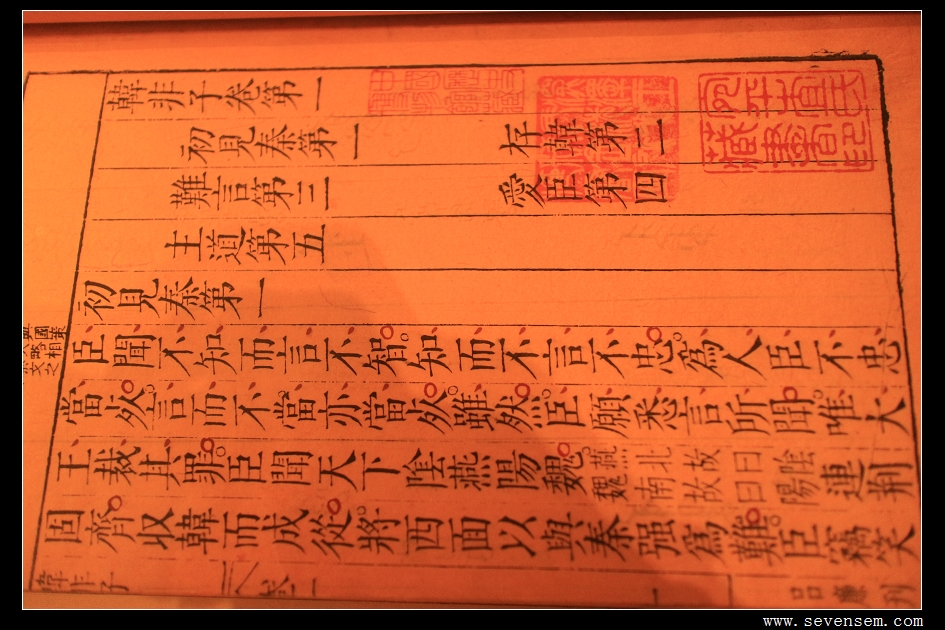 韓非子卷第一
初見秦第一 存韓第二
難言第三 愛臣第四
主道第五
初見秦第一
臣聞不知而言不智。知而不言不忠。為人臣不忠
當死。言而不當亦當死。雖然。臣願悉言所聞。唯大
王裁其罪。臣聞天下陰燕陽魏。燕北故曰陰魏南故曰陽連荆
固齊收韓而成從。將西面以與秦强為難。臣竊笑
韓非子
www.sevensem.com